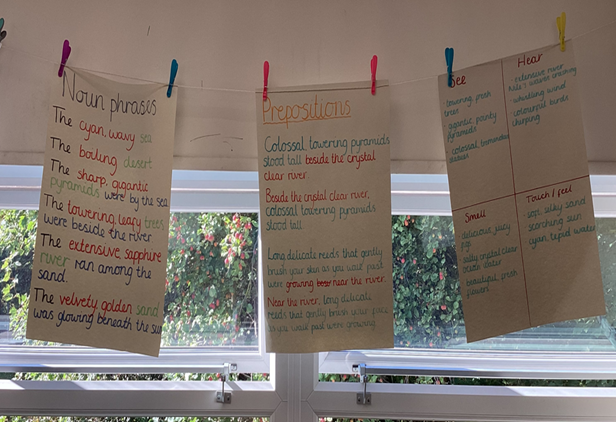 Noun phrases
The cyan, wavy sea
The boiling desert
The sharp, gigantic
pyramids were by the sea
The towering, leafy trees
were beside the river
The extensive sapphire
river ran among the
sand.
The velvety, golden sand
was glowing beneath the sun
Prepositions
Colossal towering pyramids
stood tall beside the crystal
clear river.
Beside the crystal clear river,
colossal towering pyramids
stood tall.
Long delicate reeds that gently
brush your skin as you wait past
were growing near the river.
Near the river, long delicate
reeds that gently brush your
as you wait past were growing
See
towering, fresh
trees
gigantic, pointy
colossal,
statues
Hear
extensive river
Nile's waves crashing
whistling wind
colourful birds
chirping
Smell
delicious, juicy
figs
salty crystal clear
ocean water
beautiful, fresh
flowers
Touch / feel
soft, silky sand
scorching sun
cyan tepid water